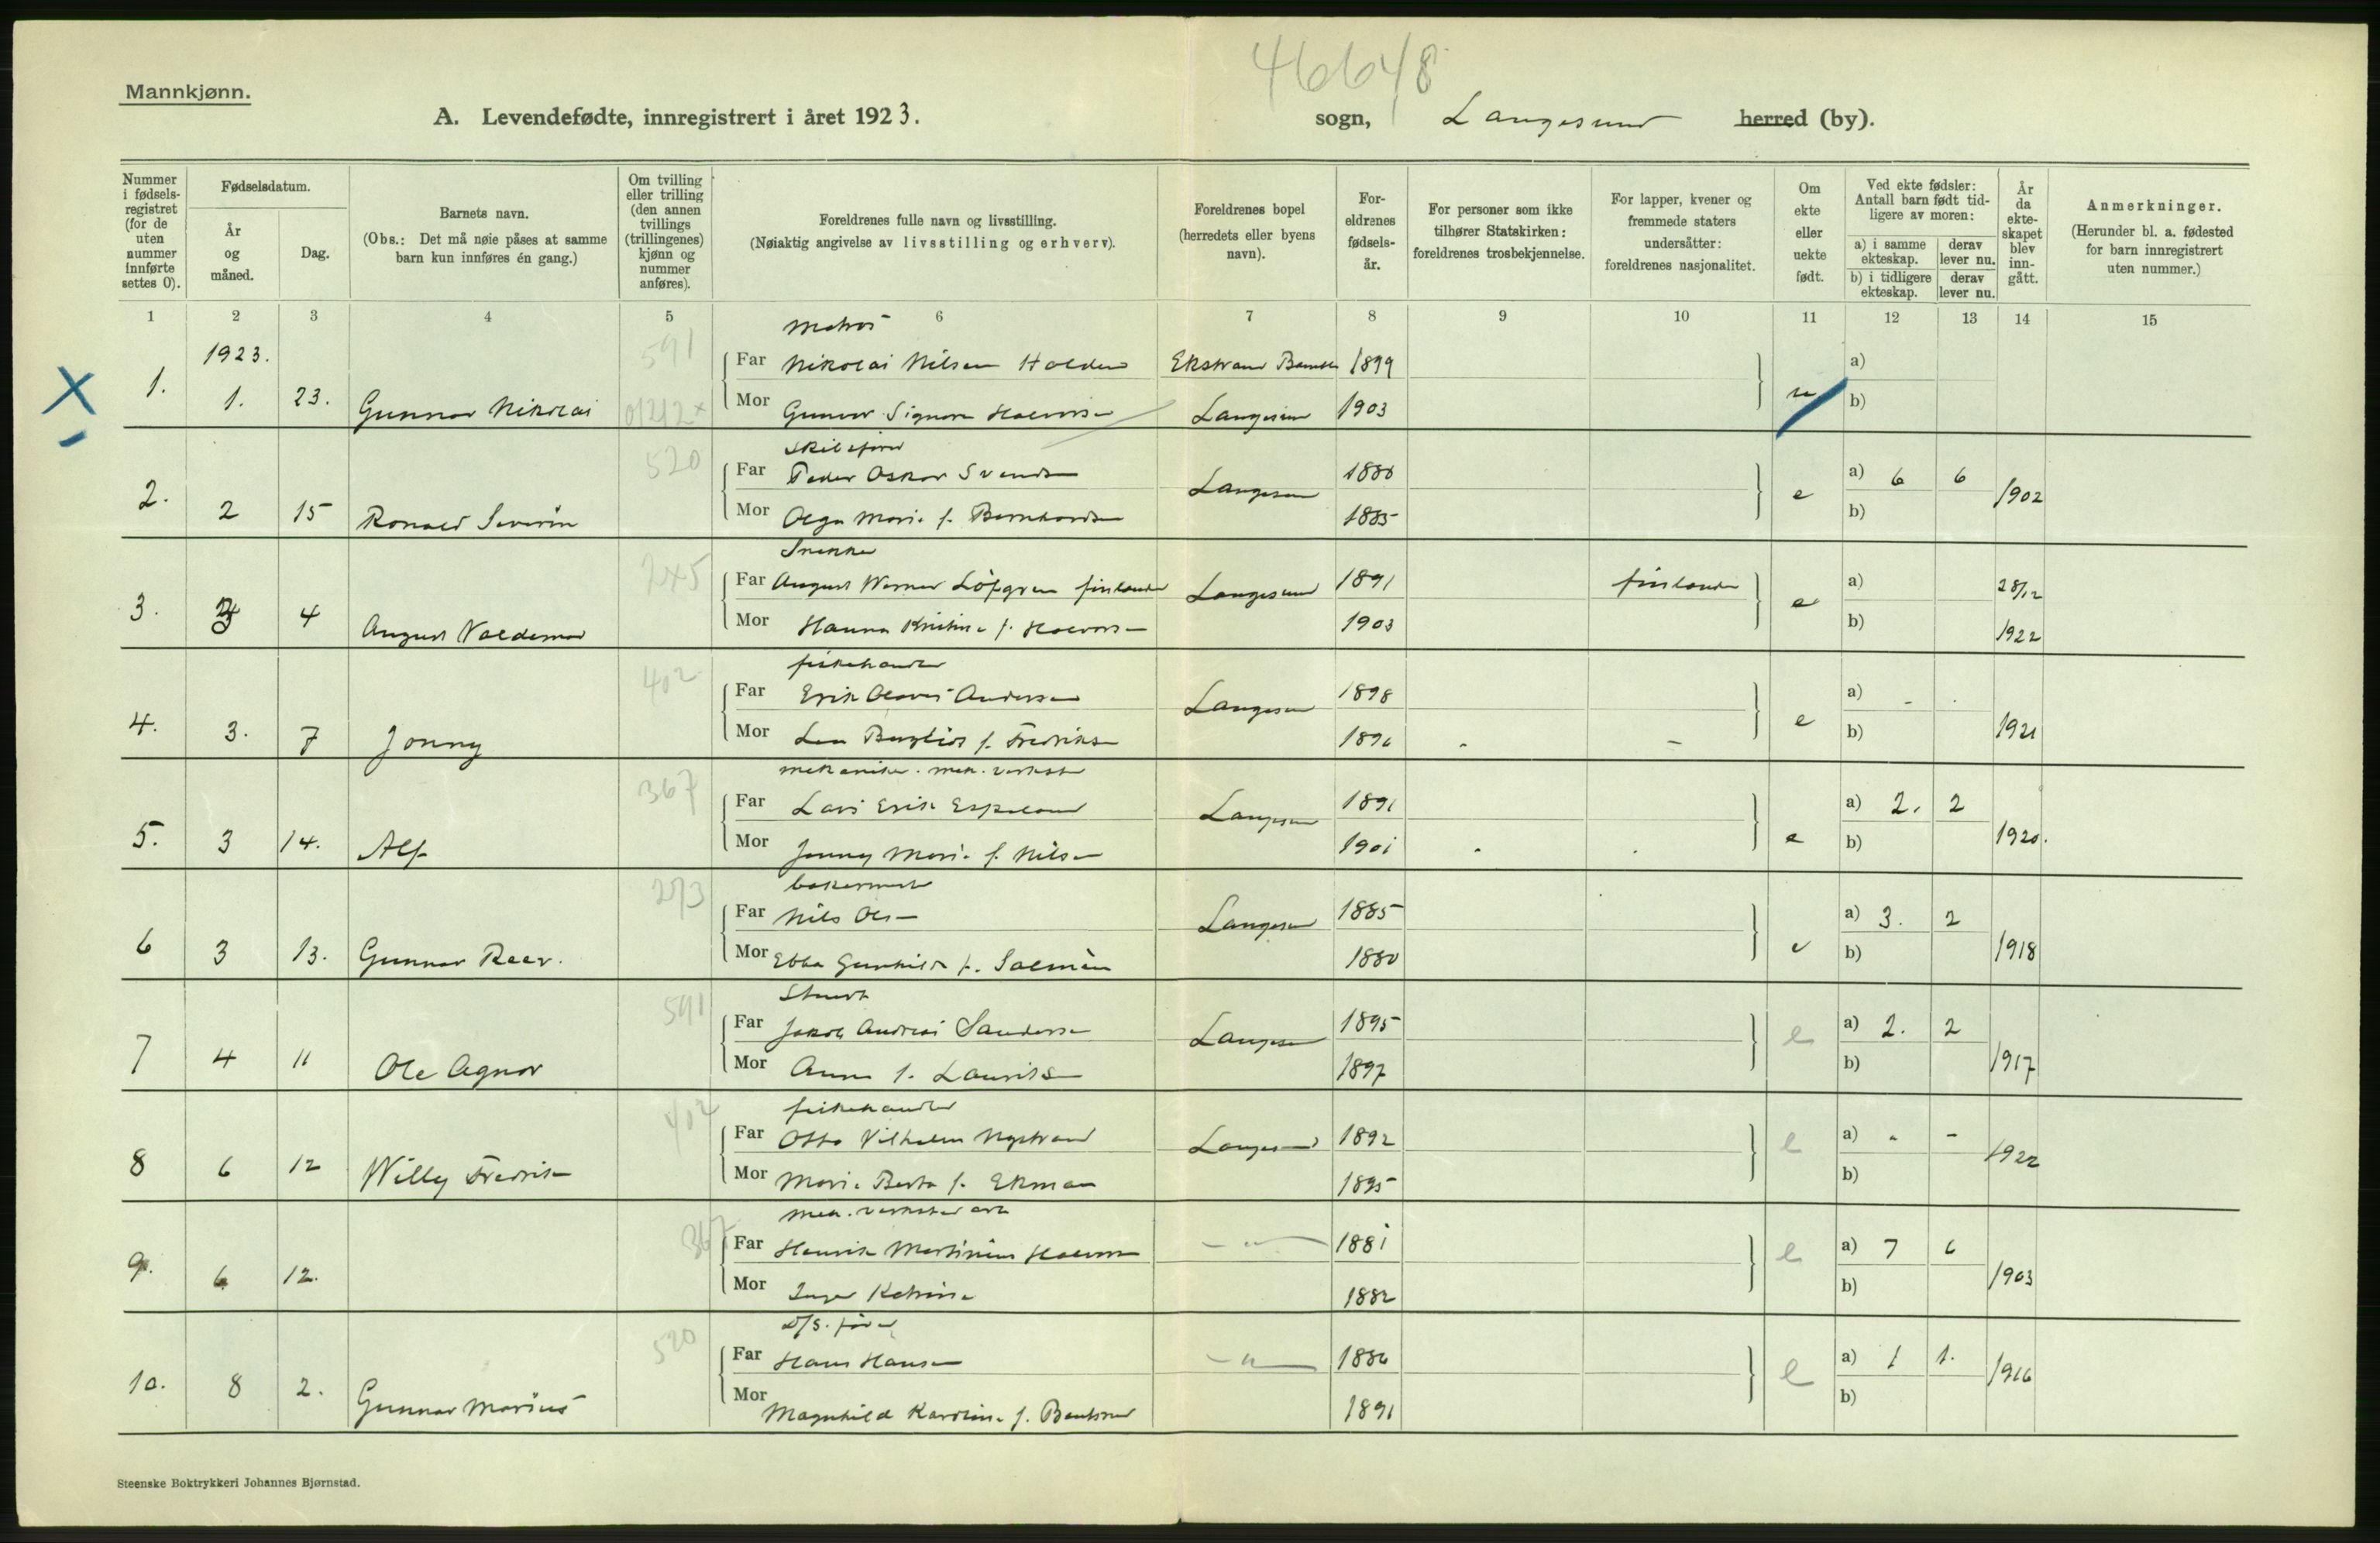 46648
Mannkjønn.
A. Levendefødte, innregistrert i året 1923.
sogn, Langesund herred (by).
Nummer i fødsels-registret (for de uten nummer innførte settes 0).
Fødselsdatum.
År og måned.
Dag.
Barnets navn.
(Obs.: Det må nøie påses at samme barn kun innføres én gang.)
Om tvilling eller trilling (den annen tvillings (trillingenes) kjønn og nummer anføres).
Foreldrenes fulle navn og livsstilling.
(Nøiaktig angivelse av livsstilling og erhverv).
Foreldrenes bopel (herredets eller byens navn).
For-eldrenes fødsels-år.
For personer som ikke tilhører Statskirken: foreldrenes trosbekjennelse.
For lapper, kvener og fremmede staters undersåtter: foreldrenes nasjonalitet.
Om ekte eller uekte født.
Ved ekte fødsler: Antall barn født tid-ligere av moren:
a) i samme ekteskap.
derav lever nu.
b) i tidligere ekteskap.
derav lever nu.
År da ekte-skapet blev inn-gått.
Anmerkninger.
(Herunder bl. a. fødested for barn innregistrert uten nummer.)
1 2 3 4 5 6 7 8 9 10 11 12 13 14 15
1923.
591
Matros
X 1. 1. 23. Gunnar Nikolai
Far Nikolai Nilsen Halden Ekstrand Bamble 1899 a)
Mor Gunvor Signora Halvorsen Langesund 1903 u b)
520
Skibsfører
2. 2 15 Ronald Severin
Far Peder Oskar Svendsen Langesund 1880 e a) 6 6 1902
Mor Olga Marie f. Bernhardsen 1885 b)
245
Snekker
3. 3 4 August Valdemar
Far August Werner Löfgren finlender Langesund 1891 finlender e a) 28/12
Mor Hanna Kristine f. Halvorsen 1903 b) 1922
402
fiskehandler
4. 3. 7 Jonny
Far Erik Olaves Andersen Langesund 1898 e a) -
Mor f. Fredriksen 1896 - b) 1921
367
mekaniker. mek. verksted
5. 3 14. Alf
Far Lars Erik Espeland Langesund 1891 e a) 2. 2
Mor Jenny Marie f. Nilsen 1901 b) 1920.
273
bakermester
6 3 13. Gunnar Reer.
Far Nils Olsen Langesund 1885 e a) 3. 2
Mor Ebba Gunhild f. Salmèn 1880 b) 1918
591
Stuert
7 4 11 Ole Agnar
Far Jakob Andreas Sandersen Langesund 1895 e a) 2. 2
Mor Anna f. Lauritsen 1897 b) 1917
402
fiskehandler
8 6 12 Willy Fredrik
Far Otto Vilhelm Nystrand Langesund 1892 e a) - - 1922
Mor Marie Berta f. Ekman 1895 b)
367
mek. verksted arb
9. 6 12.
Far Henrik Martinius Halvorsen — " — 1881 e a) 7 6
Mor Inger Katrine 1882 b) 1903
520
D/S. fører
10. 8 2. Gunnar Marius
Far Hans Hansen — " — 1886 e a) 1 1. 1916
Mor Magnhild Karoline f. Bentsen 1891 b)
Steenske Boktrykkeri Johannes Bjørnstad.